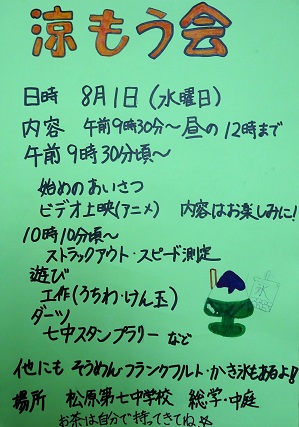 涼もう会
日時 8月1日(水曜日)
内容 午前9時30分～昼の12時まで
午前9時30分頃～
始めのあいさつ
ビデオ上映(アニメ) 内容はお楽しみに!
10時10分頃～
ストラックアウト・スピード測定
遊び
工作(うちわ・けん玉)
ダーツ
七中スタンプラリー など
氷
他にも そうめん・フランクフルト・かき氷もあるよ!!
場所 松原第七中学校 総学・中庭
お茶は自分で持ってきてね☆